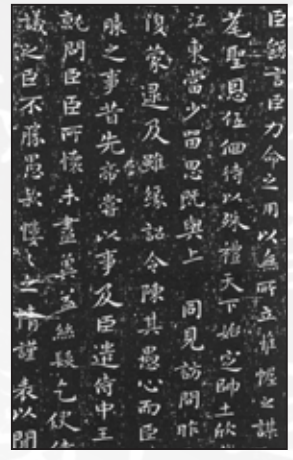 臣繇言臣力命之用以無所立帷幄之謀
耄聖恩低佪待以殊禮天下始定帥土欣
江東當少留思既與上 同見訪問昨
復蒙逮及雖緣詔令陳其愚心而臣
膝之事昔先帝嘗以事及臣遣侍中王
就問臣臣所懷未盡奏丞絲髮乞使侍
議之臣不勝愚款慺〻之情謹 表以聞